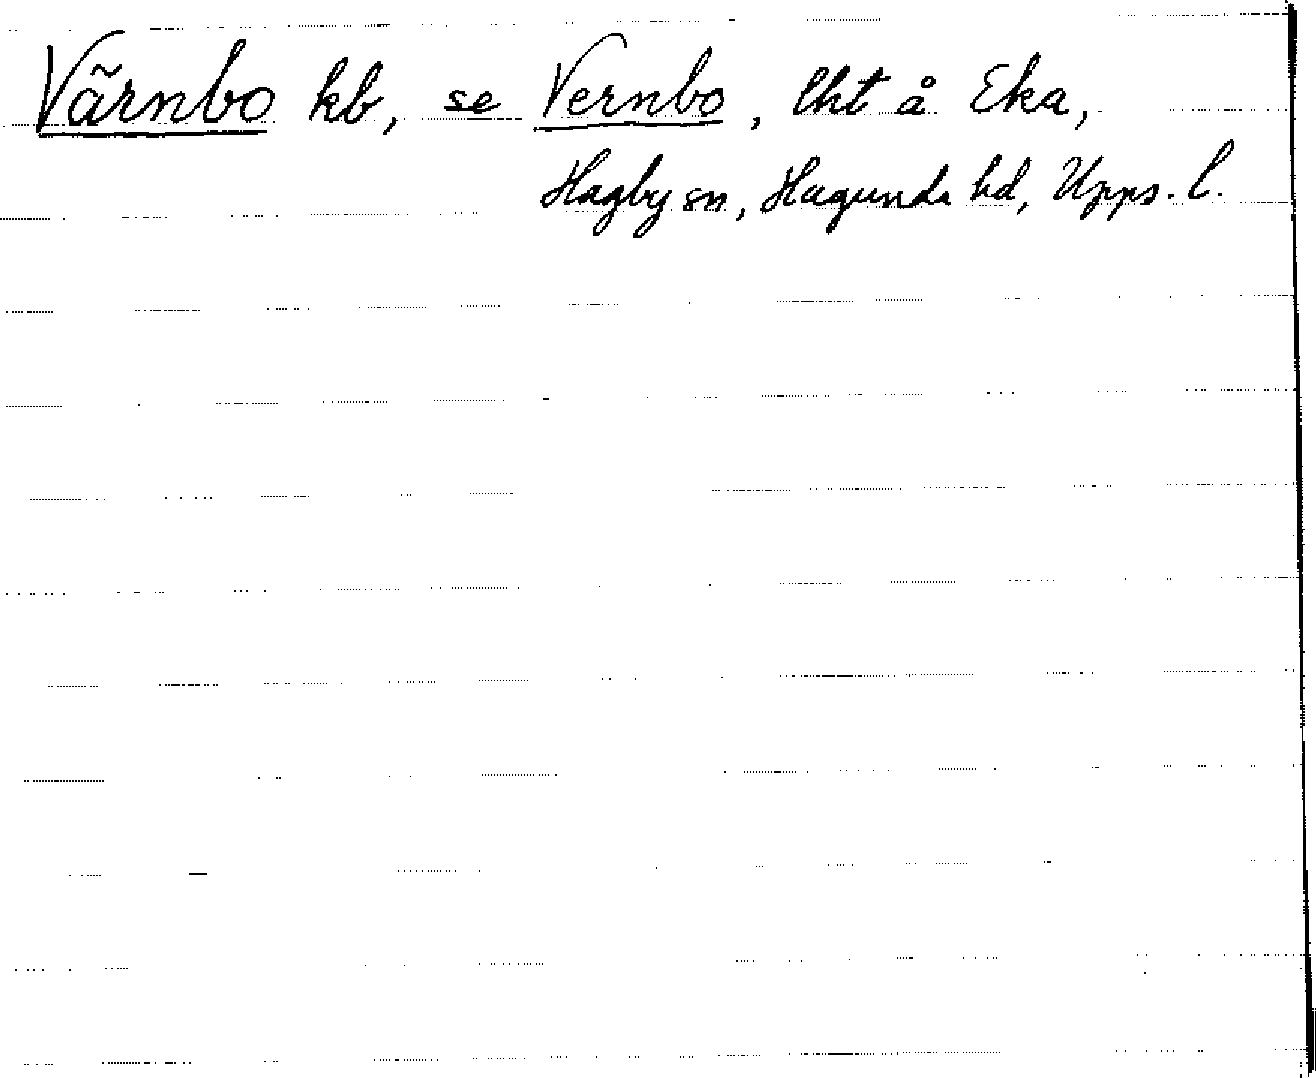 Värnbo kb, se Vernbo, lht å Eka,
Hagby sn, Hagunda hd, Upps. l.